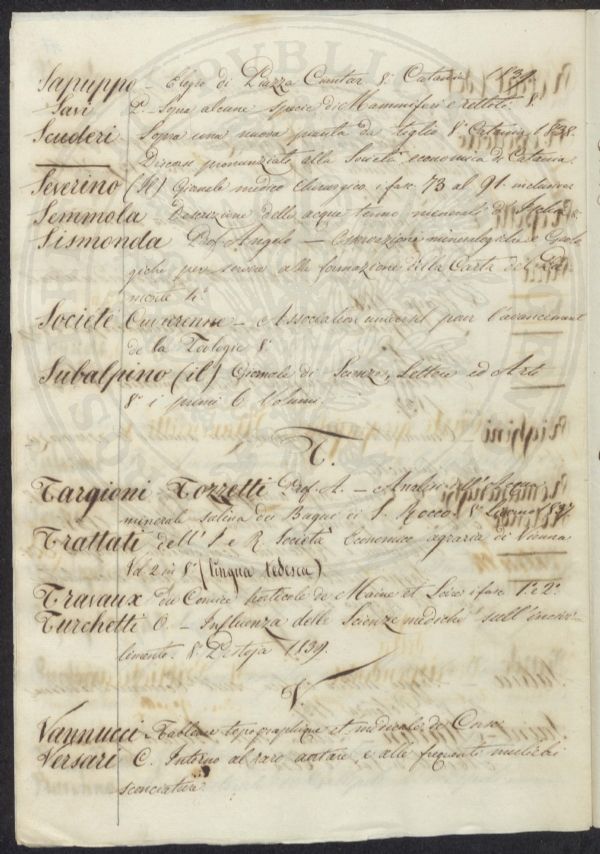 Sapuppo - Elogio di Piazza Ciantar 8° Catania 1839.
Savi P. - Sopra alcune specie di Mammiferi e rettili. 8°
Scuderi - Sopra una nuova pianta da tiglio 8° Catania 1838.
Discorso pronunziato alla Società economica di Catania
Severino (Il) Giornale medico Chirurgico i fasc. 73 al 91. inclusive
Semmola Descrizione delle acque termo minerali d'Ischia 8°
Sismonda Prof. Angelo - Osservazioni mineralogiche e Geolo
giche per servire alla formazione della Carta del Pie
monte 4°
Societé Cuvierenne - Association universel pour l'avancement
de la Zoologie 8°
Subalpino (il) Giornale di Scienze, Lettere ed Arti
8° i primi 6 Volumi.
T.
Targioni Tozzetti Prof. A. - Analisi dell'Acqua
minerale salina dei Bagni di S. Rocco. 8° Livorno 1837
Trattati dell'I. e R. Società Economico agraria di Vienna
Vol. 2 in 8° (lingua tedesca)
Travaux du Comice horticole de Maine et Loire i fasc. 1° 2°
Turchetti O. - Influenza delle Scienze mediche sull'incivi-
limento. 8° Pistoja 1839.
V.
Vannucci Tableau topographique et medicale de Corse
Versari C. Intorno al raro aortare, e alle frequenti muliebri
sconciature